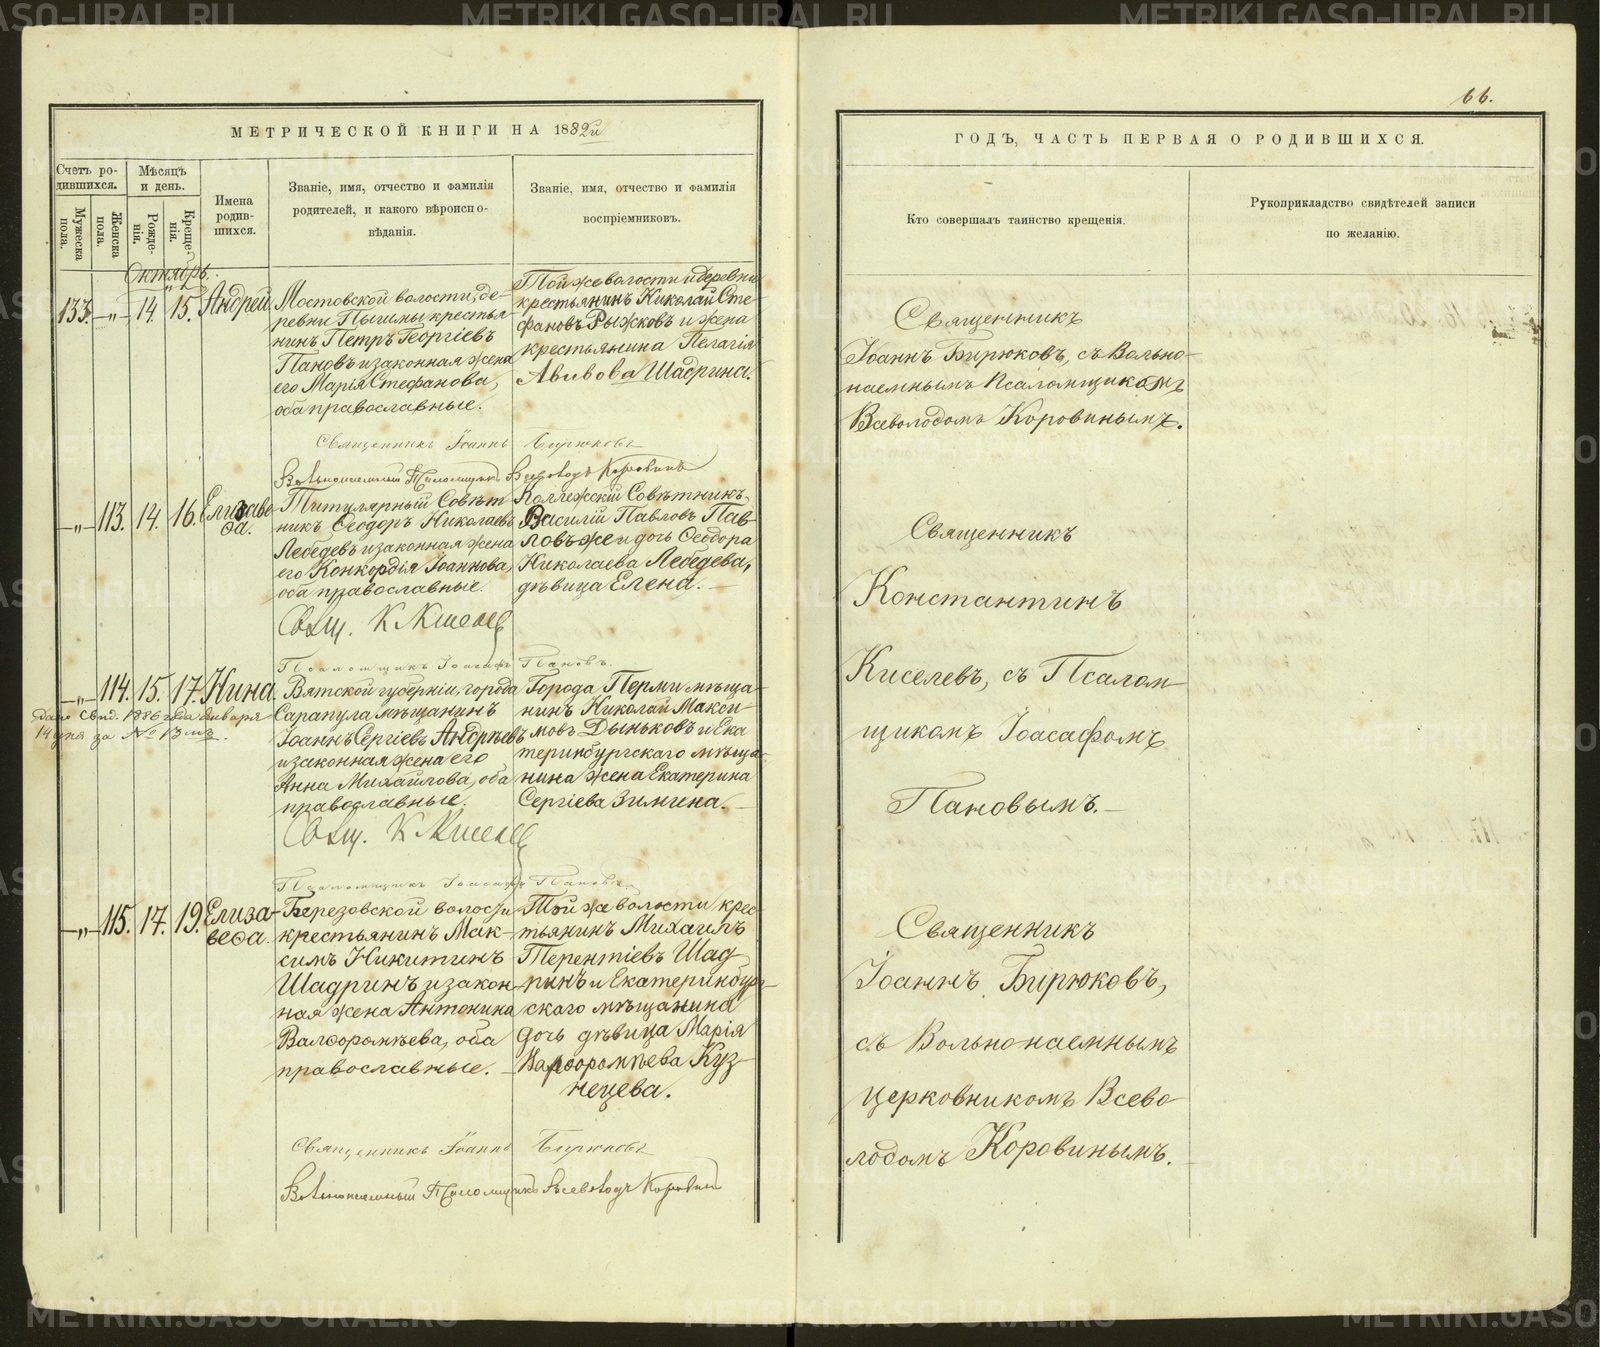 METRIKI.GASO-URAL.RU
66.
МЕТРИЧЕСКОЙ КНИГИ НА 1882й
Счетъ родившихся.
Мужеска пола.
Женска пола.
Мѣсяцъ и день.
Рожденія.
Крещенія.
Имена родившихся.
Званіе, имя, отчество и фамилія
родителей, и какого вѣроиспо-
вѣданія.
Званіе, имя, отчество и фамилія
воспріемниковъ.
Октябрь.
133. —„— 14. 15. Андрей
Мостовской волости, де-
ревни Пышмы крестья-
нинъ Петръ Георгіевъ
Пановъ и законная жена
его Марія Стефанова,
оба православные.
Той же волости и деревни
крестьянинъ Николай Сте-
фановъ Рыжковъ и жена
крестьянина Пелагія
Авивова Шадрина.
Священникъ Іоаннъ Бирюковъ
Вольнонаемный Псаломщикъ Всеволодъ Коровинъ
—„— 113. 14. 16. Елизаве-
ѳа.
Титулярный Совѣт-
никъ Ѳеодоръ Николаевъ
Лебедевъ и законная жена
его Конкордія Іоаннова,
оба православные.
Коллежскій Совѣтникъ
Василій Павловъ Пав-
ловъ же и дочь Ѳеодора
Николаева Лебедева,
дѣвица Елена.
Свящ. К Киселевъ
Псаломщикъ Іоасафъ Пановъ.
—„— 114. 15. 17. Нина.
Дано свид. 1886 года Января
14 дня за № 13мъ.
Вятской губерніи, города
Сарапула мѣщанинъ
Іоаннъ Сергіевъ Андреевъ
и законная жена его
Анна Михайлова, оба
православные.
Города Перми мѣща-
нинъ Николай Макси-
мовъ Дыньковъ и Ека-
теринбургскаго мѣща-
нина жена Екатерина
Сергіева Зимина.
Свящ. К Киселевъ
Псаломщикъ Іоасафъ Пановъ.
—„— 115. 17. 19. Елиза-
веѳа.
Березовской волости
крестьянинъ Мак-
симъ Никитинъ
Шадринъ и закон-
ная жена Антонина
Варѳоломѣева, оба
православные.
Той же волости крес-
тьянинъ Михаилъ
Терентіевъ Шад-
ринъ и Екатеринбург-
скаго мѣщанина
дочь дѣвица Марія
Варѳоломѣева Куз-
нецева.
Священникъ Іоаннъ Бирюковъ
Вольнонаемный Псаломщикъ Всеволодъ Коровинъ
ГОДЪ, ЧАСТЬ ПЕРВАЯ О РОДИВШИХСЯ.
Кто совершалъ таинство крещенія.
Рукоприкладство свидѣтелей записи
по желанію.
Священникъ
Іоаннъ Бирюковъ, съ Вольно-
наемнымъ Псаломщикомъ
Всеволодомъ Коровинымъ.
Священникъ
Константинъ
Киселевъ, съ Псалом-
щикомъ Іоасафомъ
Пановымъ.
Священникъ
Іоаннъ Бирюковъ,
съ Вольнонаемнымъ
церковникомъ Всево-
лодомъ Коровинымъ.